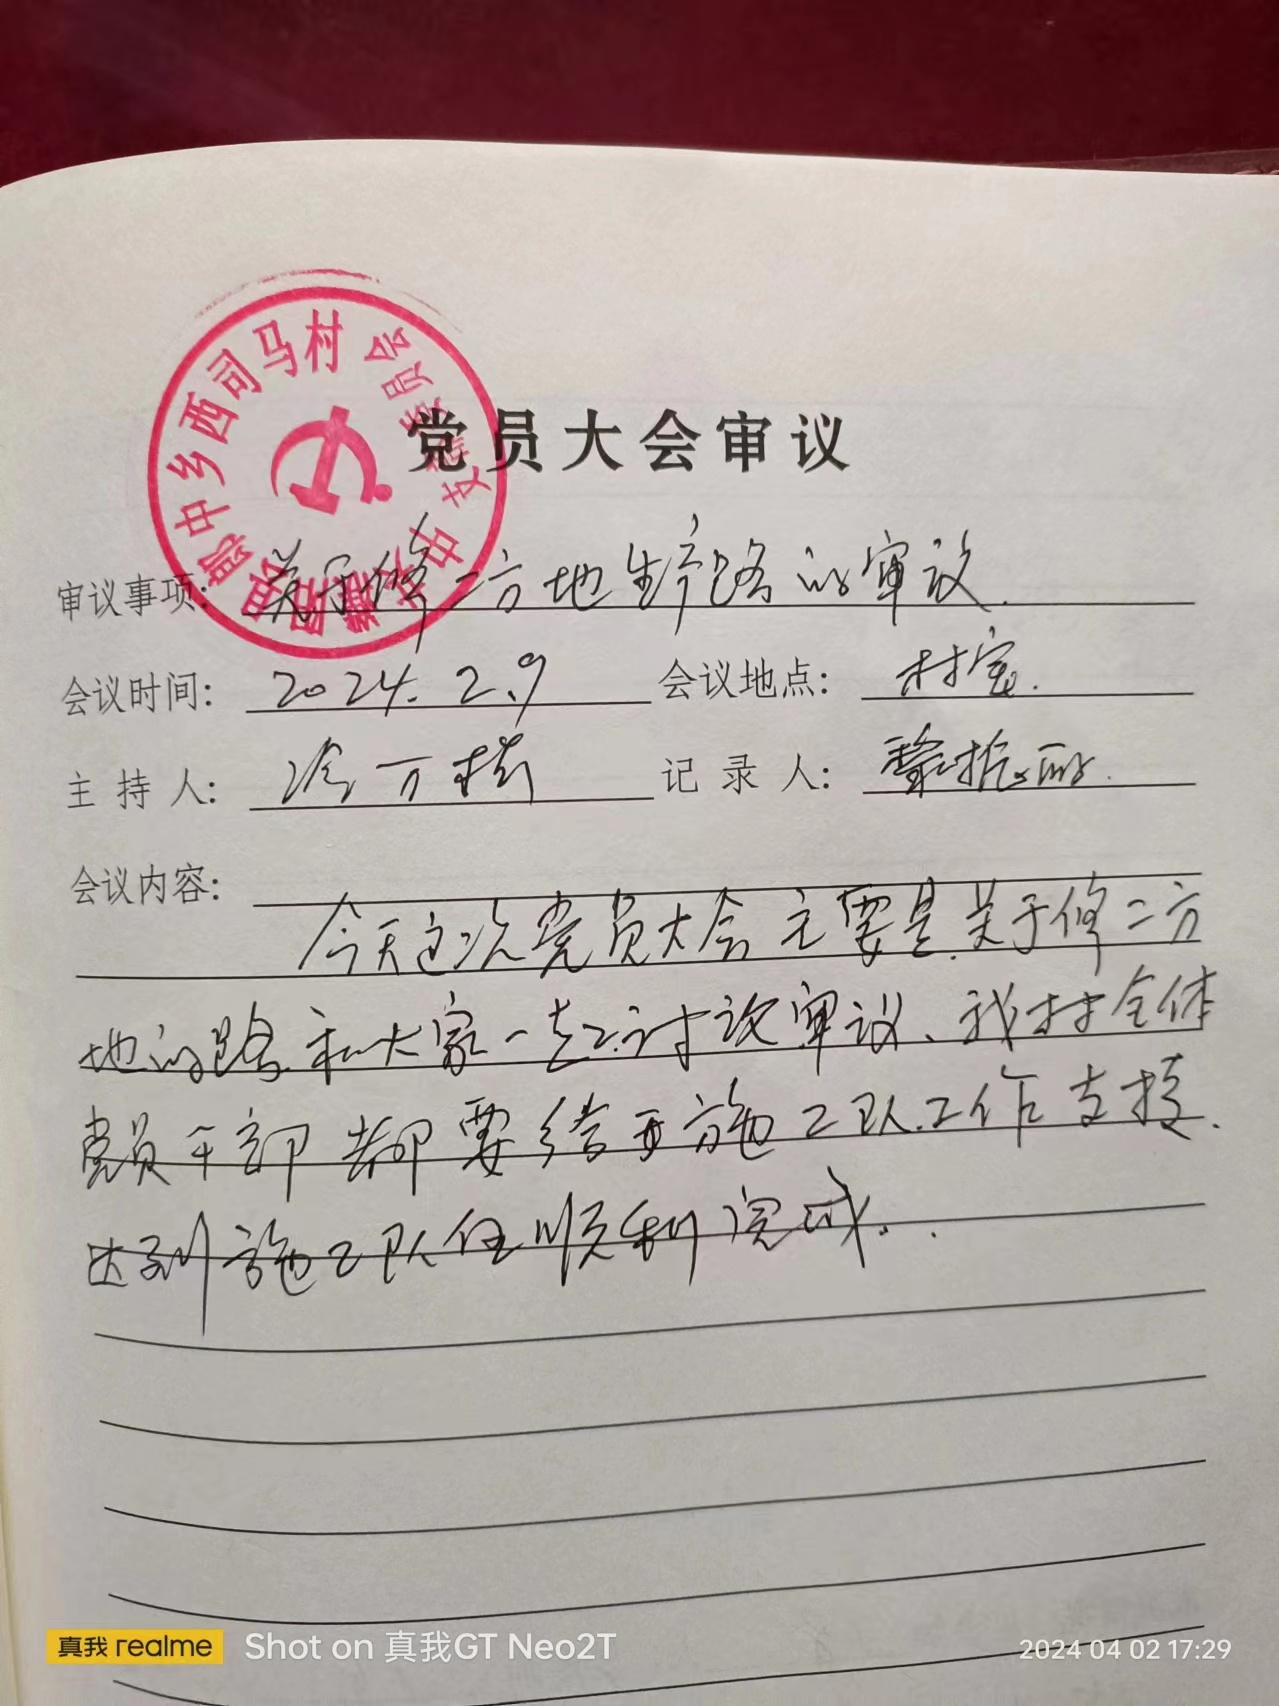 中共濮阳县郎中乡西司马村支部委员会
党员大会审议
审议事项: 关于修二方地生产路的审议.
会议时间: 2024.2.9 会议地点: 村室.
主 持 人: 记 录 人:
会议内容:
今天这次党员大会主要是关于修二方
地的路和大家一起讨议审议、我村全体
党员干部都要给予施工队工作支持.
达到施工队伍顺利完成..
真我 realme Shot on 真我GT Neo2T 2024 04 02 17:29